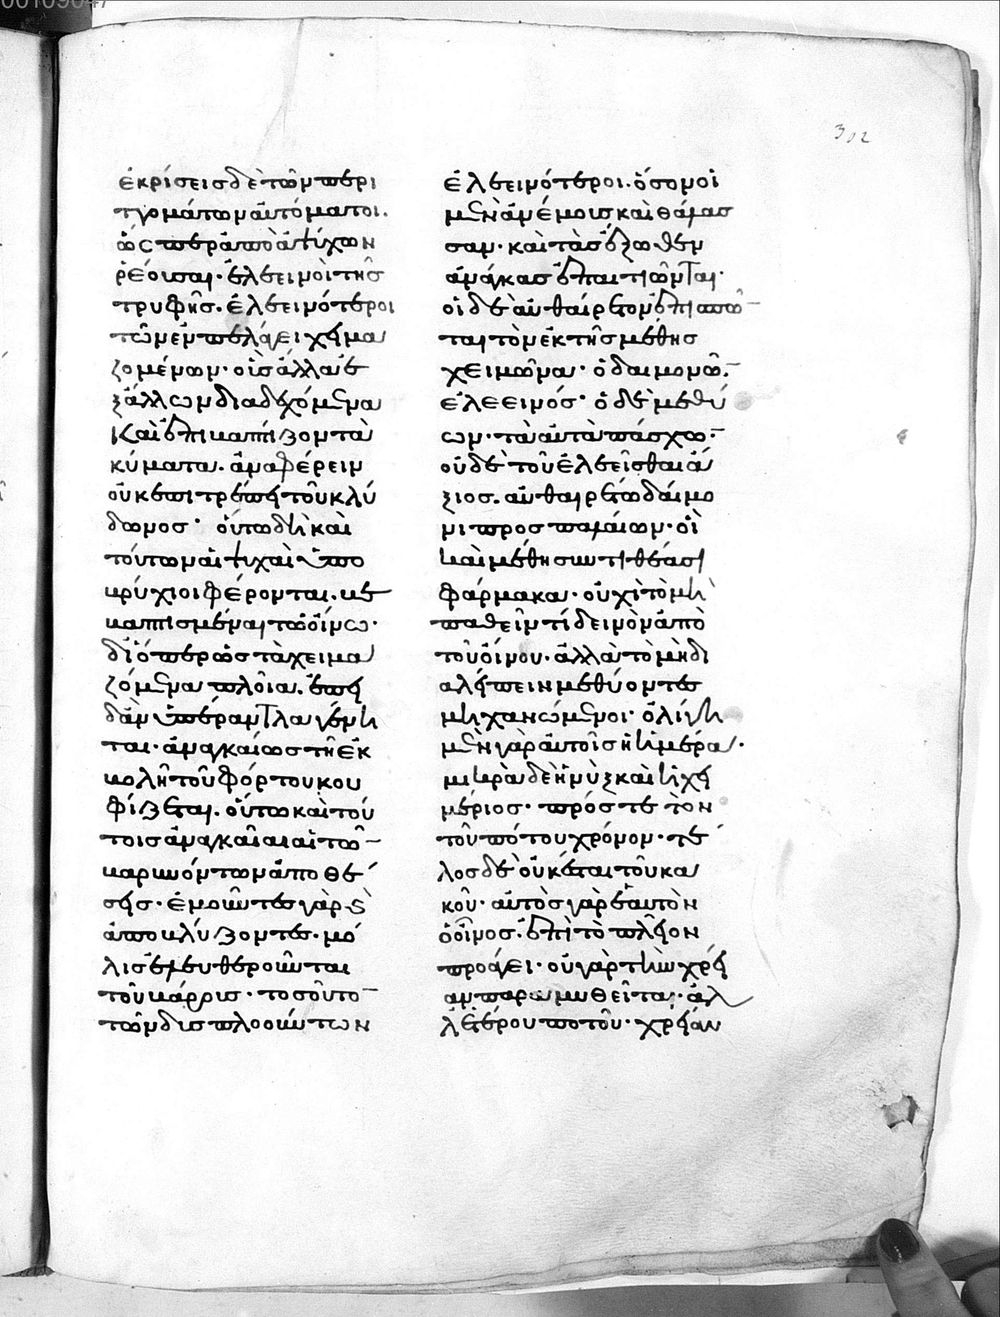 00109047
302
ἐκρίσεις δὲ τῶν περι
τωμάτων ἀυτόματοι.
ὡσπερ ἀπὸ ἀυχων
ρέουσαι. ἐλεεινοὶ τῆς
τρυφῆς. ἐλεεινότεροι
τῶν ἐν πελάγει χειμα
ζομένων. οὓς ἄλλα ἐ
ξ ἄλλων διαδεχόμενα
καὶ ἐπιβαπτίζοντα
κύματα. ἀναφέρειν
οὐκ ἐπιτρέπει τοῦ κλύ
δωνος. οὕτω δὴ καὶ
τούτων αἱ ψυχαὶ ὑπο
βρύχιοι φέρονται. βε
βαπτισμέναι τῶ οἴνω.
διόπερ ὡς τὰ χειμα
ζόμενα πλοῖα. ἐπει
δὰν ὑπέραντλα γένη
ται. ἀναγκαίως τῆ ἐκ
βολῆ τοῦ φόρτου κου
φίζεται. οὕτω καὶ τού
τοις ἀναγκαῖαι αἱ τῶ
βαρυνόντων ἀποθέ
σεις. ἐμοῦντες γὰρ καὶ
ἀποβλύζοντες. μό
λις ἐλευθεροῦνται
τοῦ βάρους. τοσοῦτο
τῶν δισπλοούντων
ἐλεεινότεροι. ὅσον οἱ
μὲν ἀνέμους καὶ θάλασ
σαν. καὶ τὰς ἔξωθεν
ἀνάγκας ἐπαιτιῶνται.
οἱ δὲ αὐθαίρετον ἐπισπῶ
ται τὸν ἐκ τῆς μέθης
χειμῶνα. ὁ δαιμονῶ
ἐλεεινός. ὁ δὲ μεθύ
ων. τὰ αὐτὰ πάσχων.
οὐδὲ τοῦ ἐλεεῖσθαι ἄ
ξιος. αὐθαιρέτω δαίμο
νι προσπαλαίων. οἱ
καὶ μέθης συντιθέασι
φάρμακα. οὐχὶ τὸ μὴ
παθεῖν τί δεινὸν ἀπὸ
τοῦ οἴνου. ἀλλὰ τὸ μὴ δι
αλείπειν μεθύοντες
μηχανώμενοι. ὀλίγη
μὲν γὰρ αὐτοῖς ἡ ἡμέρα.
μικρὰ δὲ ἡ νὺξ καὶ ἡ χει
μέριος. πρός τε τὸν
τοῦ πότου χρόνον. τέ
λος δὲ οὐκ ἔσται τοῦ κα
κοῦ. αὐτὸς γὰρ ἑαυτὸν
ὁ οἶνος. ἐπὶ τὸ πλεῖον
προάγει. οὐ γὰρ τὴν χρεί
αν παραμυθεῖται. ἀλ
λ' ἑτέρου ποτοῦ. χρείαν